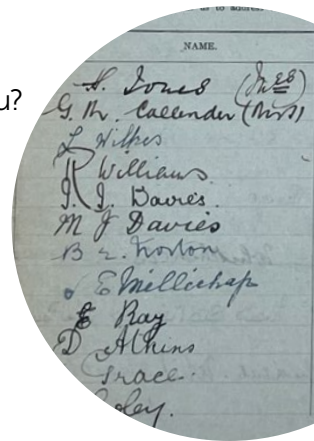 u?
us to address
NAME.
H. Jones (Mrs)
G. M. Callender (Mrs)
L Wilkes
R Williams
I. J. Davies.
M J Davies
B E. Norton
E Millichap
E Ray
D Atkins
Grace.
oley.